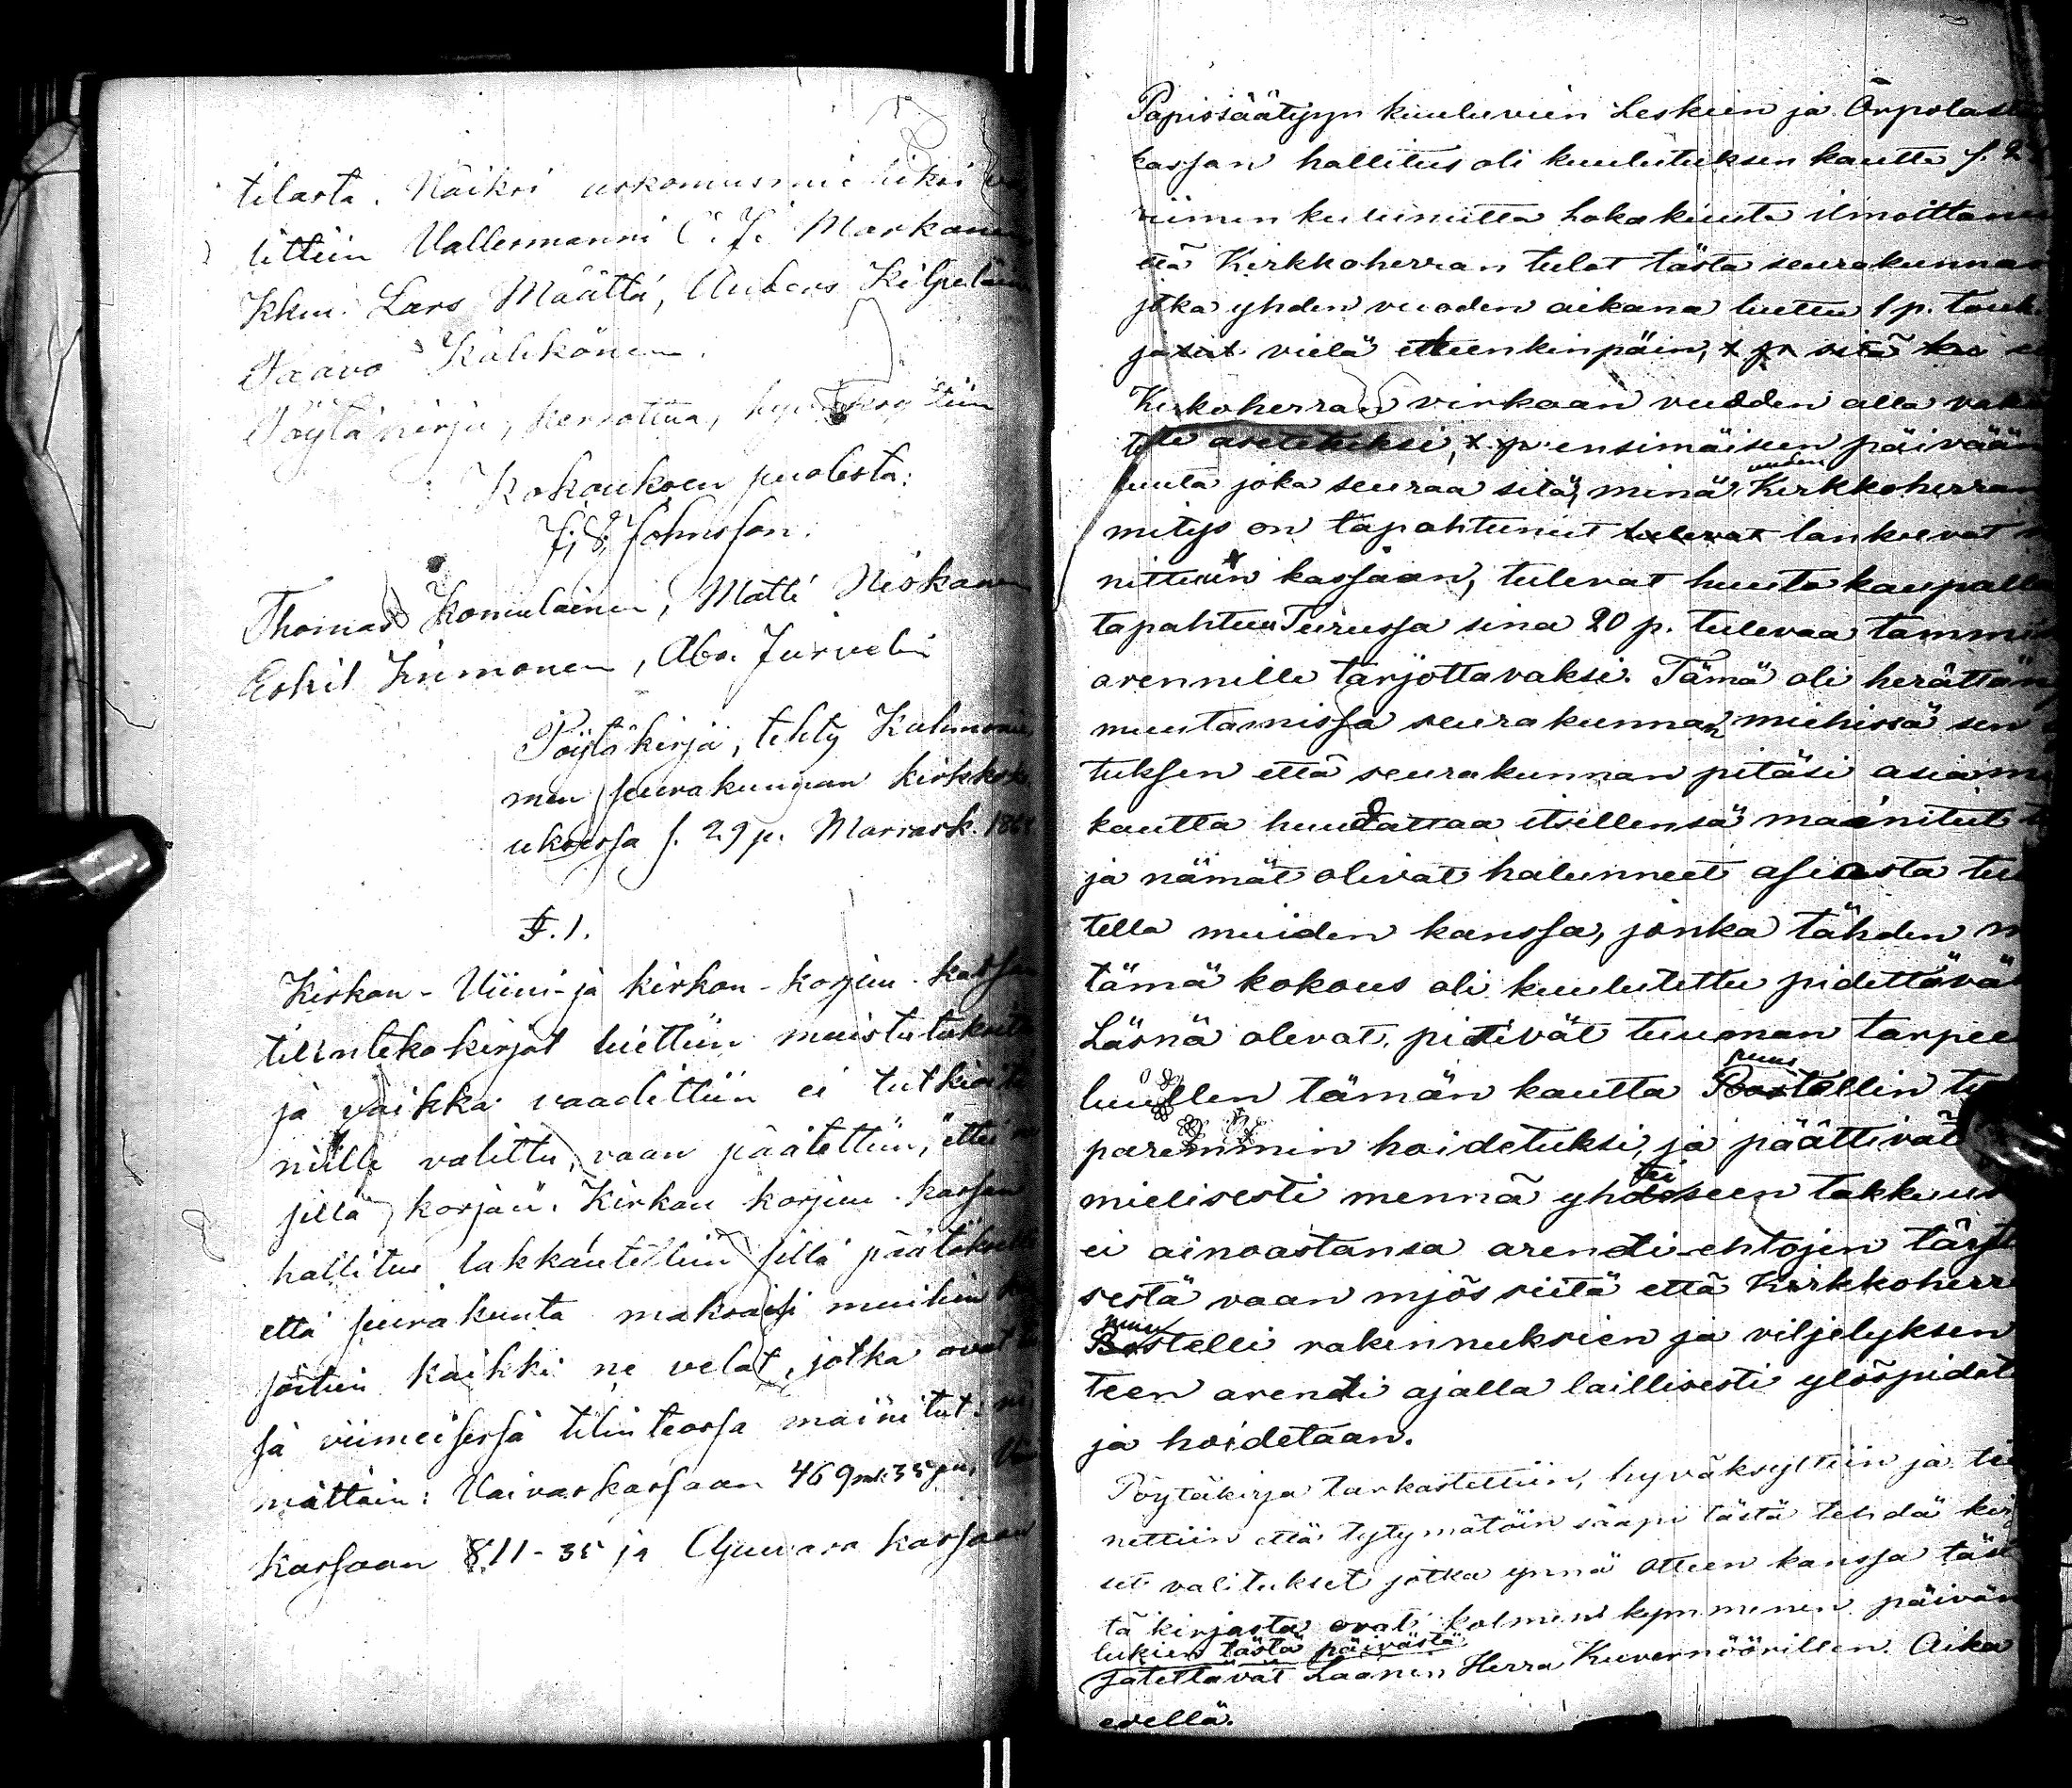 tilasta. Näiksi uskomusmiehiksi
littiin Vallesmanni C. J. Markanen
Lars Määttä, Kilpeläinen
Paavo Kälikönen.
Pöytäkirja, kerrottua, hyväksyttiin
Kokouksen puolesta:
Johnsson.
Thomas Komulainen, Matti Niskanen
Eskil Kiimonen, Abr. Jurvelin
Pöytäkirja, tehty Kuhmonie
men seurakunnan kirkkoko
uksessa s. 29 p. Marrask.
§. 1.
Kirkon-Viini- ja kirkon-korjuu-kassan
tilintekokirjat luettiin muistutuksitta
ja vaikka vaadittiin ei tutkioita
niille valittu, vaan päätettiin, ettei
sillä korjaü. Kirkon korjuu kassan
hallitus lakkautettiin sillä päätöksellä
että seurakunta maksaisi muihin
söihin kaikki ne velat, jotka ovat
sä viimeisessä tilinteossa mainitut: ni
mättäin: Vaivaskassaan 469 mk 35 pn,
kassaan 811-35 ja kassaan
Papissäätyyn kuuluvien Leskein ja Orpolasten
kassan hallitus oli kuulutuksen kautta s. 2
viimen kulunutta Lokakuuta ilmoittanut
että Kirkkoherran tulot tästä seurakunnas
joka yhden vuoden aikana luettu 1 p. touk.
ja vielä etteenkinpäin, sitä
Kirkoherran virkaan vuoden alla vaki
asetetuksi, ensimäiseen päivään
kuuta joka seuraa sitä, minä uuden Kirkkoherran
mitys on tapahtunut tulevat lankeevat
nittuun kassaan, tulevat huutokaupalla
tapahtuu Turussa sina 20 p. tulevaa tammik
arennille tarjottavaksi. Tämä oli herättän
muutamissa seurakunnan miehissä sen
tuksen että seurakunnan pitäsi asiami
kautta huudattaa itsellensä mainitut
ja nämät olivat halunneet asiasta tu
tella muiden kanssa, jonka tähden
tämä kokous oli kuulutettu pidettävä
Läsnä olevat, pitivät tuuman tarpee
luullen tämän kautta Puustellin
paremmin hoidetuksi, ja päättivät
mielisesti mennä yhteiseen takkuus
ei ainoastansa arenti-ehtojen täyte
sestä vaan mjös siitä että Kirkkoherra
Puustelli rakennuksien ja viljelyksen
teen arenti ajalla laillisesti ylöspidet
ja hoidetaan.
Pöytäkirja tarkastettiin, hyväksyttiin ja
nettiin että tytymätöin saapi tästä tehdä kirj
set valitukset jotka ynnä otteen kanssa täs
tä kirjasta ovat kolmen kymmenen päivän
lukien tästä päivästä
jätettävät Läänin Herra Kuvernöörillen. Aika
edellä.